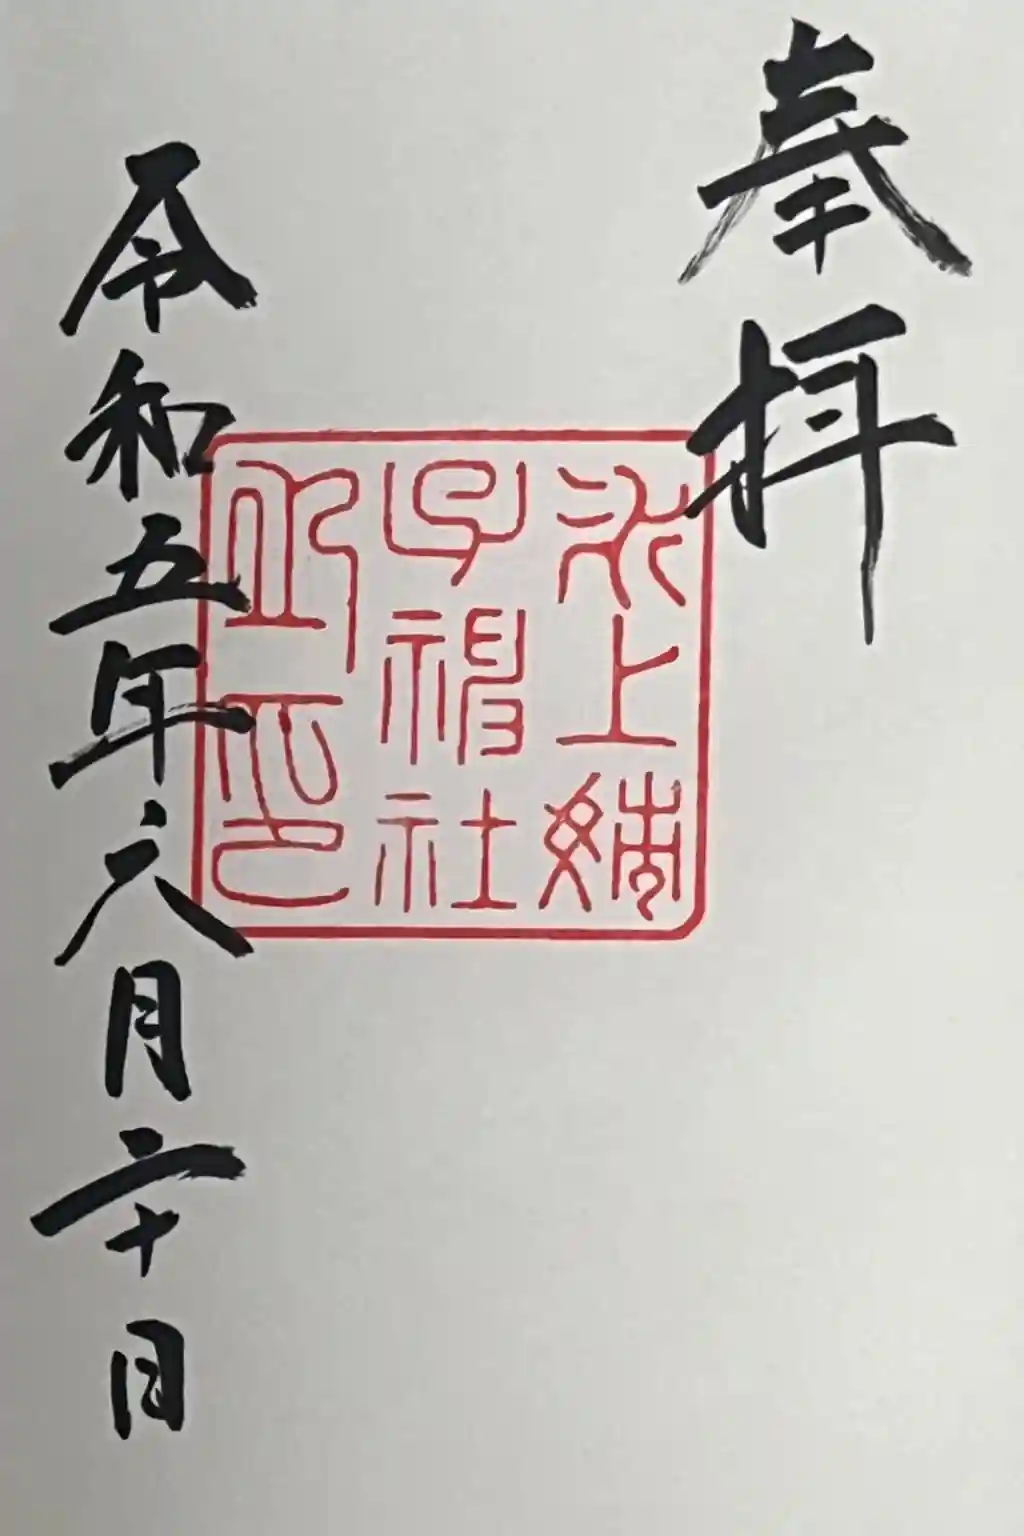 奉拝
氷上姉
子神社
之印
令和五年六月二十日